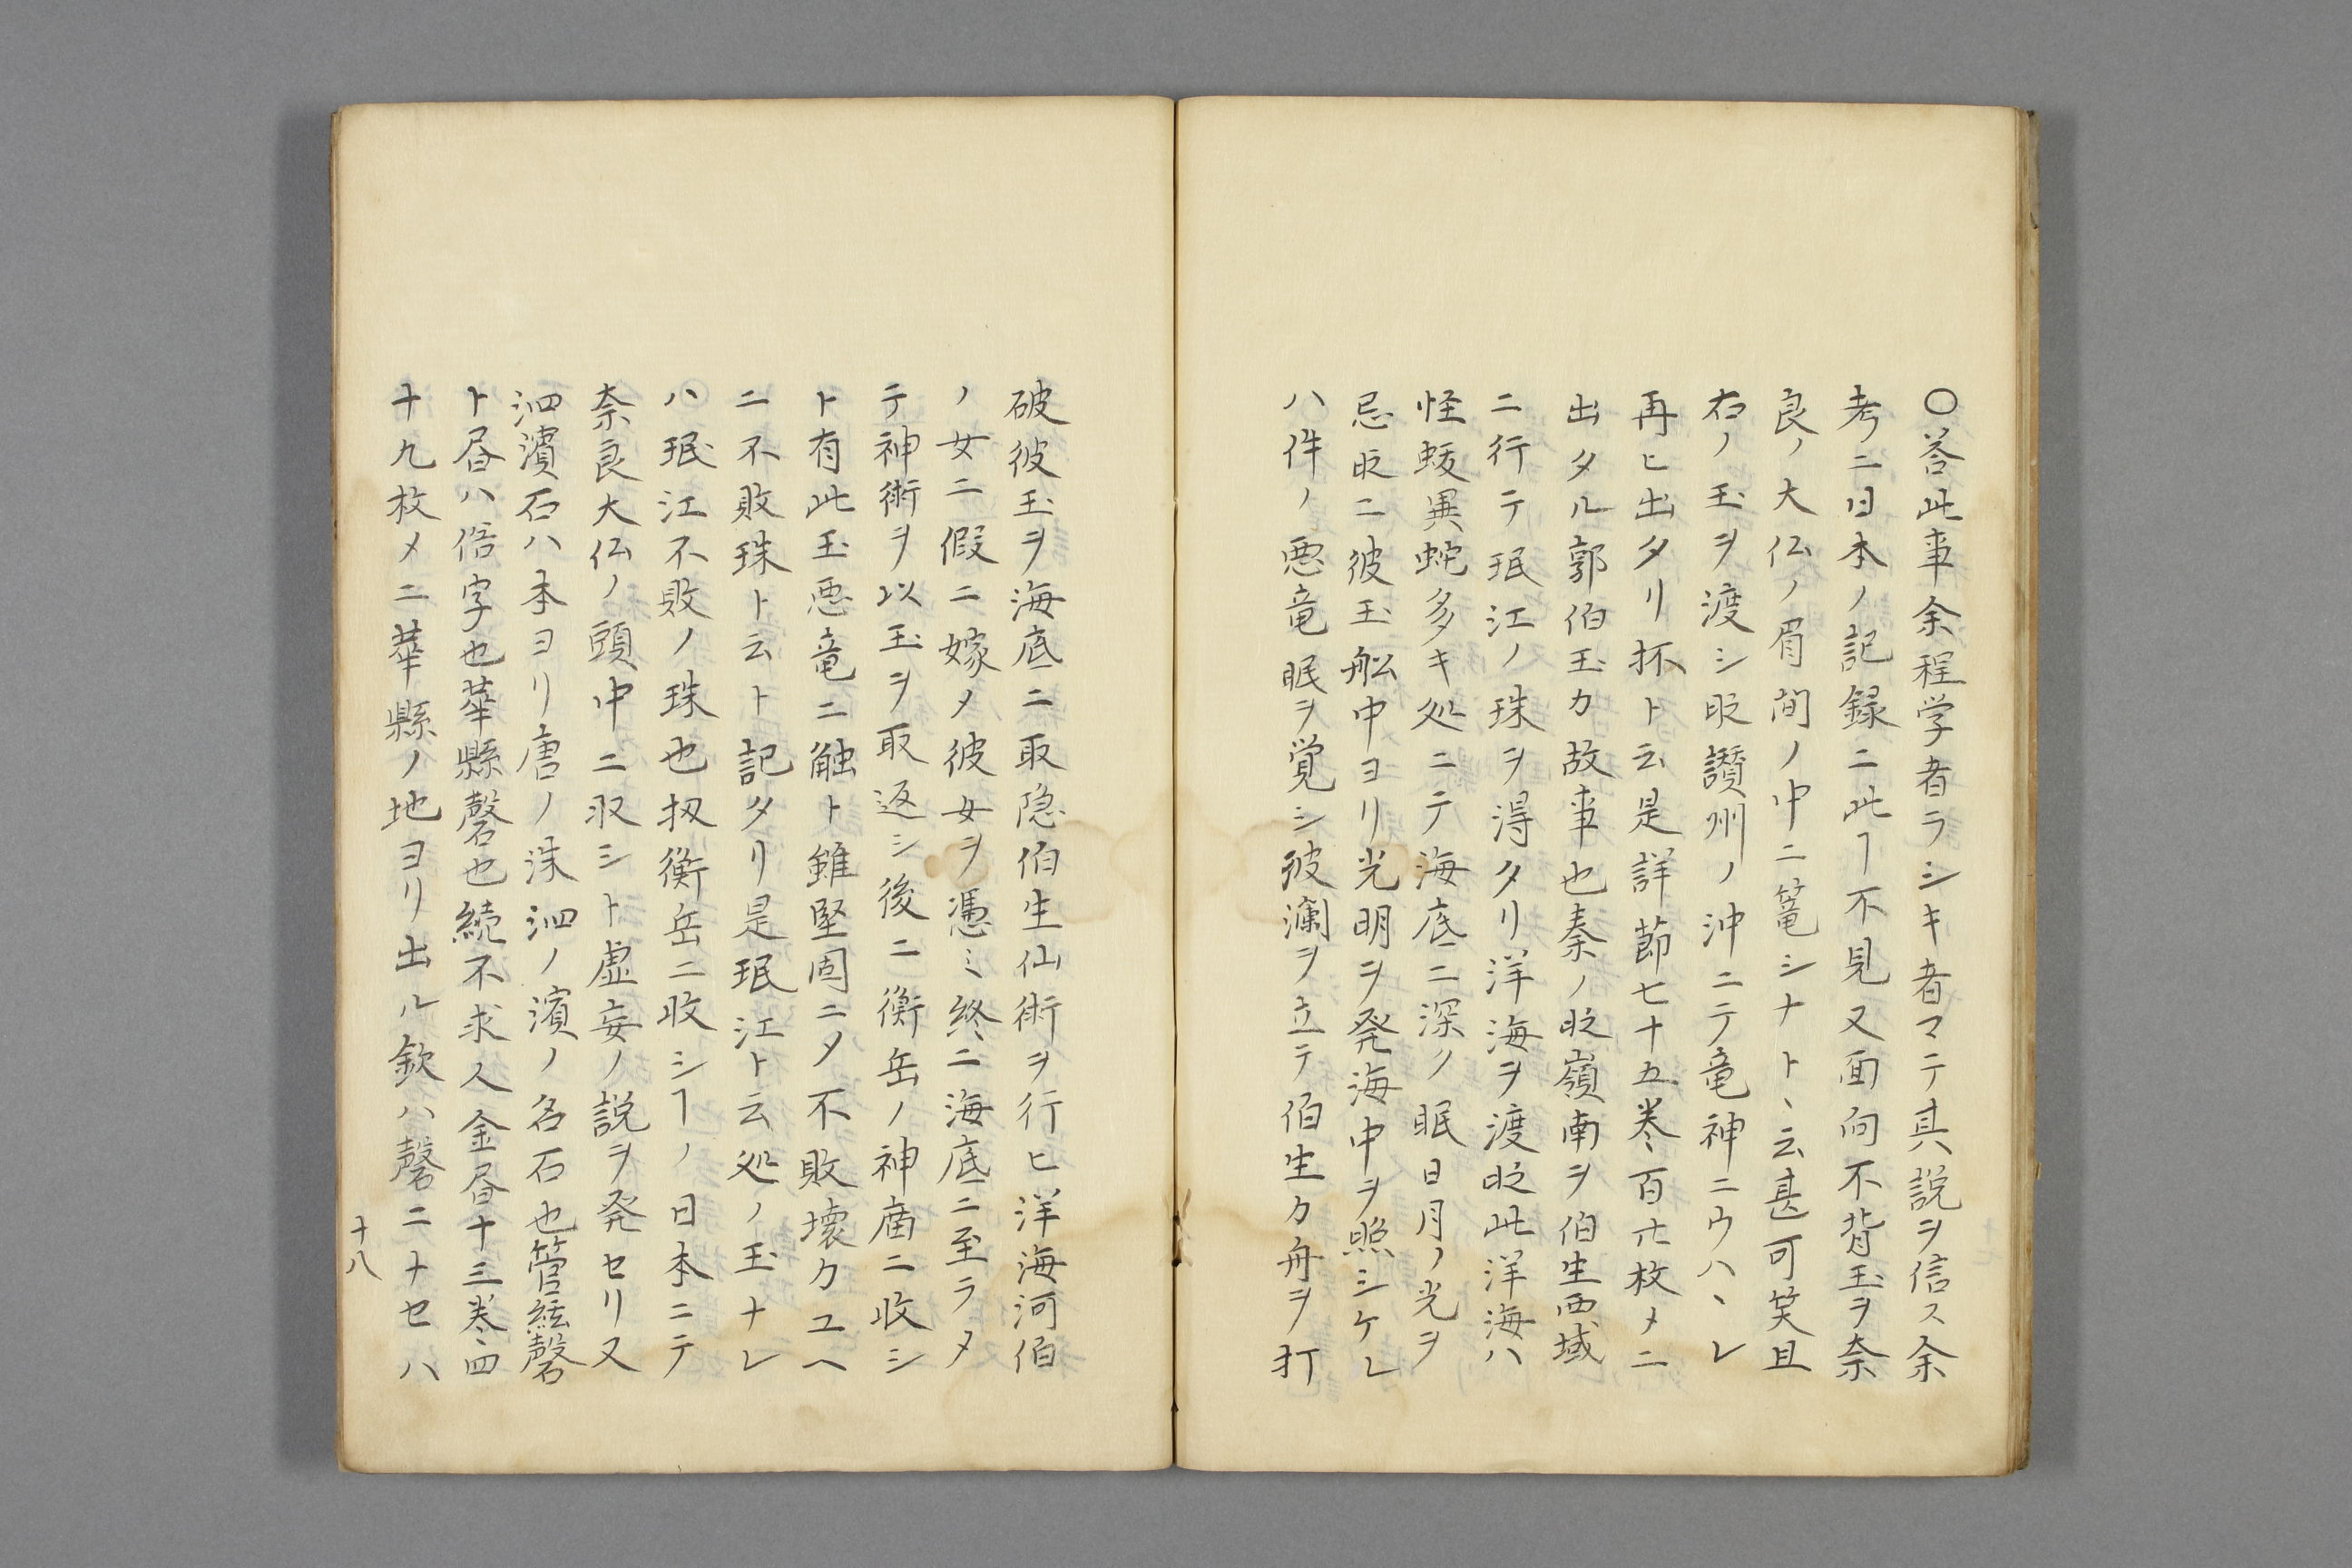 〇答此事余程学者ラシキ者マテ其説ヲ信ス余
考ニ日本ノ記録ニ此ヿ不見又面向不背玉ヲ奈
良ノ大仏ノ眉間ノ中ニ篭シナトヽ云甚可笑且
右ノ玉ヲ渡シ時讃州ノ沖ニテ竜神ニウハヽレ
再ヒ出タリ抔ト云是詳節七十五巻百廿枚メニ
出タル郭伯玉カ故事也秦ノ時嶺南ヲ伯生西域
ニ行テ珉江ノ珠ヲ得タリ洋海ヲ渡時此洋海ハ
怪蛟異蛇多キ処ニテ海底ニ深ク眠日月ノ光ヲ
忌時ニ彼玉舩中ヨリ光明ヲ発海中ヲ照シケレ
ハ件ノ悪竜眠ヲ覚シ彼瀾ヲ立テ伯生カ舟ヲ打
破彼玉ヲ海底ニ取隠伯生仙術ヲ行ヒ洋海河伯
ノ女ニ假ニ嫁メ彼女ヲ憑ミ終ニ海底ニ至ラメ
テ神術ヲ以玉ヲ取返シ後ニ衡岳ノ神庿ニ收シ
ト有此玉悪竜ニ触ト雖堅固ニメ不敗壊カユヘ
ニ不敗珠ト云ト記タリ是珉江ト云処ノ玉ナレ
ハ珉江不敗ノ珠也扨衡岳ニ收シヿノ日本ニテ
奈良大仏ノ頭中ニ収シト虚妄ノ説ヲ発セリ又
泗濱石ハ本ヨリ唐ノ洙泗ノ濱ノ名石也管絃磬
ト昏ハ俗字也華縣磬也続不求人金昏十三巻四
十九枚メニ華縣ノ地ヨリ出ル欽ハ磬ニナセハ
十八